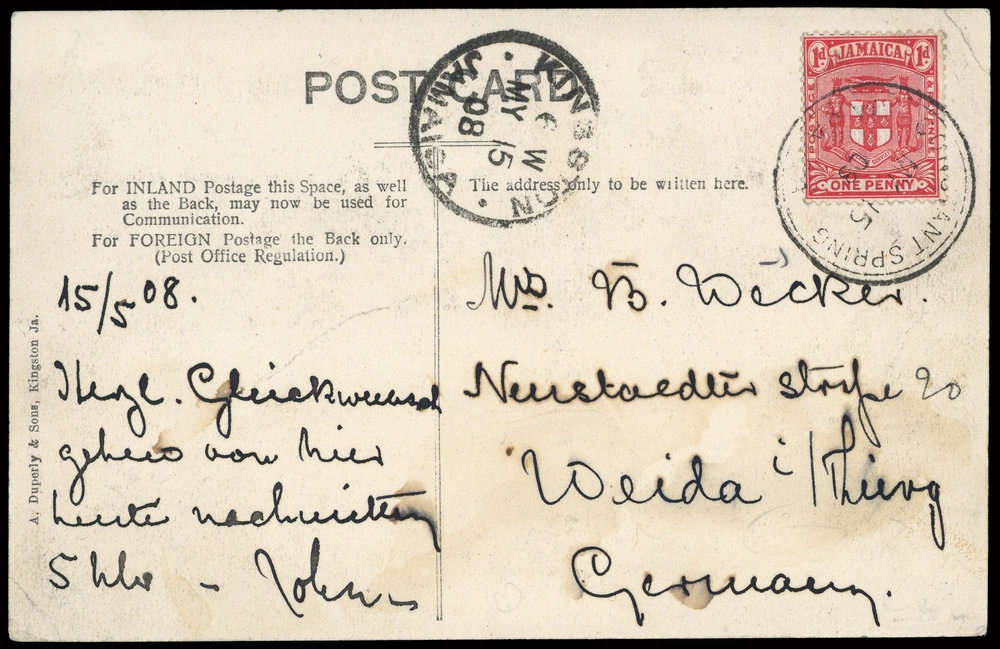 POST CARD
KINGSTON · JAMAICA ·
W
MY 15
08
1d JAMAICA 1d
POSTAGE REVENUE
ONE PENNY
CONSTANT SPRING
15
For INLAND Postage this Space, as well
as the Back, may now be used for
Communication.
For FOREIGN Postage the Back only.
(Post Office Regulation.)
The address only to be written here.
A. Duperly & Sons, Kingston Ja.
15/5 08.
Herzl. Glückwunsch
gehen von hier
heute nachmittag
5 Uhr – John
Mrs. B. Decker.
Neustaedter strasse 20
Weida i/Thürg
Germany.